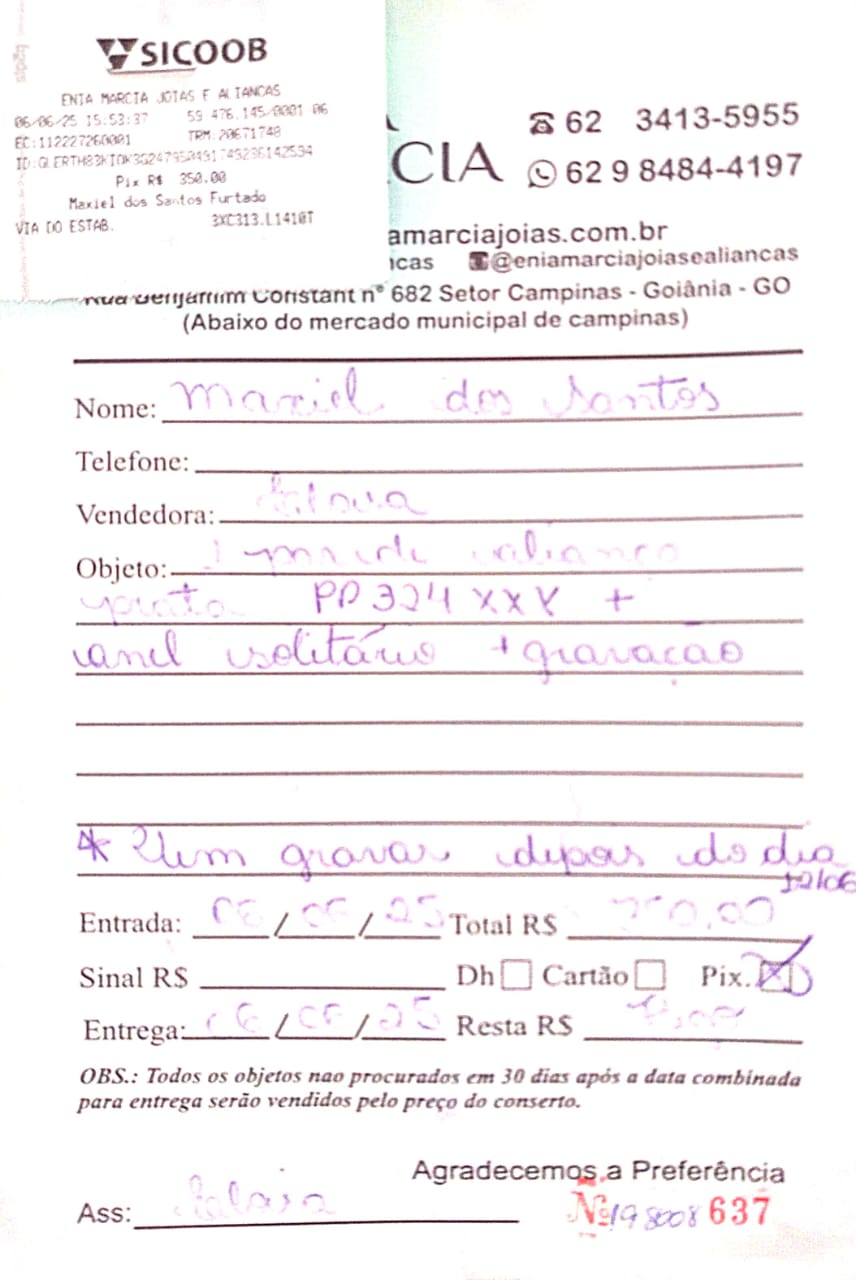 SICOOB
ENIA MARCIA JOIAS E ALIANCAS
06/06/25 15:53:37 59 476.145/0001 06
EC:112227260001 TRM:20671748
Pix R$ 350.00
Maxiel dos Santos Furtado
VIA DO ESTAB. 3XC313.L1410T
CIA
62 3413-5955
62 9 8484-4197
amarciajoias.com.br
icas @eniamarciajoiasealiancas
Rua Benjamim Constant nº 682 Setor Campinas - Goiânia - GO
(Abaixo do mercado municipal de campinas)
Nome: Maxiel dos Santos
Telefone:
Vendedora:
Objeto: 1 par de aliança
prata PP324 XXX +
anel solitário + gravação
* Vem gravar depois do dia
12/06
Entrada: 06/06/25 Total R$
Sinal R$ Dh Cartão Pix.
Entrega: 06/06/25 Resta R$
OBS.: Todos os objetos nao procurados em 30 dias após a data combinada
para entrega serão vendidos pelo preço do conserto.
Agradecemos a Preferência
Ass: Nº 198008 637